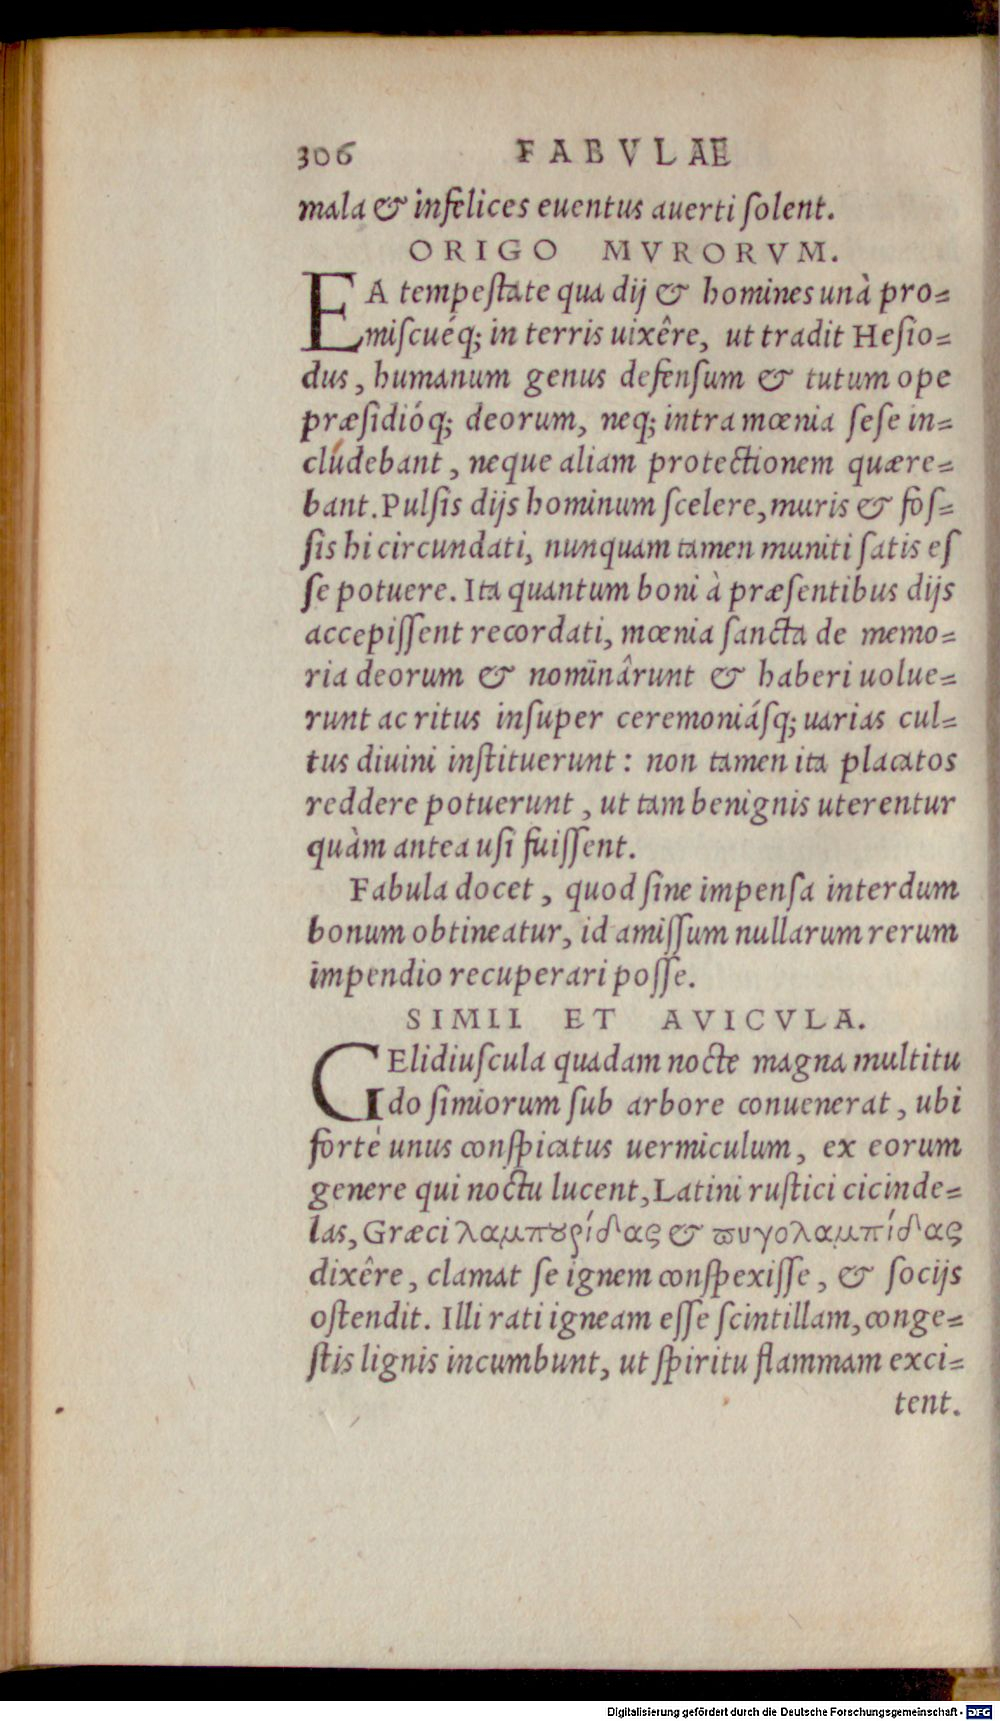 306 FABVLAE
mala & infelices euentus auerti ſolent.
ORIGO MVRORVM.
EA tempeſtate qua dij & homines unà pro=
miſcuéq; in terris uixêre, ut tradit Heſio=
dus, humanum genus defenſum & tutum ope
præſidióq; deorum, neq; intra mœnia ſeſe in=
cludebant, neque aliam protectionem quære=
bant. Pulſis dijs hominum ſcelere, muris & foſ=
ſis hi circundati, nunquam tamen muniti ſatis eſ
ſe potuere. Ita quantum boni à præſentibus dijs
accepiſſent recordati, mœnia ſancta de memo=
ria deorum & nominârunt & haberi uolue=
runt ac ritus inſuper ceremoniáſq; uarias cul=
tus diuini inſtituerunt: non tamen ita placatos
reddere potuerunt, ut tam benignis uterentur
quàm antea uſi fuiſſent.
Fabula docet, quod ſine impenſa interdum
bonum obtineatur, id amiſſum nullarum rerum
impendio recuperari poſſe.
SIMII ET AVICVLA.
GElidiuſcula quadam nocte magna multitu
do ſimiorum ſub arbore conuenerat, ubi
forté unus conſpicatus uermiculum, ex eorum
genere qui noctu lucent, Latini ruſtici cicinde=
las, Græci λαμπουρίδας & πυγολαμπίδας
dixêre, clamat ſe ignem conſpexiſſe, & ſocijs
oſtendit. Illi rati igneam eſſe ſcintillam, conge=
ſtis lignis incumbunt, ut ſpiritu flammam exci=
tent.
Digitalisierung gefördert durch die Deutsche Forschungsgemeinschaft - DFG